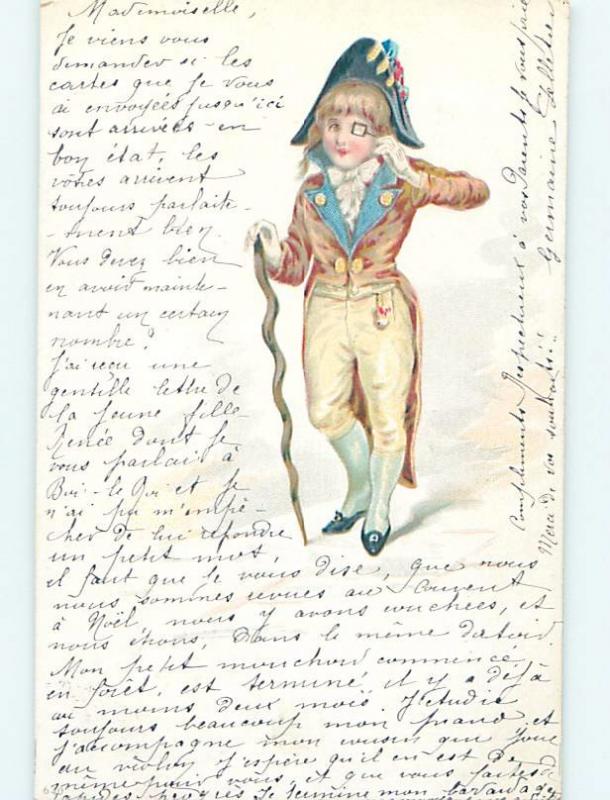 Mademoiselle,
Je viens vous
demander si les
cartes que je vous
ai envoyées jusqu'ici
sont arrivées en
bon état, les
vôtres arrivent
toujours parfaite-
-ment bien.
Vous devez bien
en avoir mainte-
nant un certain
nombre?
J'ai reçu une
gentille lettre de
la jeune fille
Renée dont je
vous parlais à
Boi-le-Roi et je
n'ai pu m'empê-
cher de lui répondre
un petit mot,
il faut que je vous dise, que nous
nous sommes revues au couvent
à Noël, nous y avons couchées, et
nous étions, dans le même dortoir.
Mon petit mouchoir commencé
en forêt, est terminé il y a déjà
au moins deux mois. J'étudie
toujours beaucoup mon piano et
j'accompagne mon cousin qui joue
au violon. J'espère qu'il en est de
même pour vous, et que vous faites de
rapides progrès. Je termine mon bavardage
Compliments Respectueux à vos Parents je vous prie
Merci de vos souhaits!! Germaine